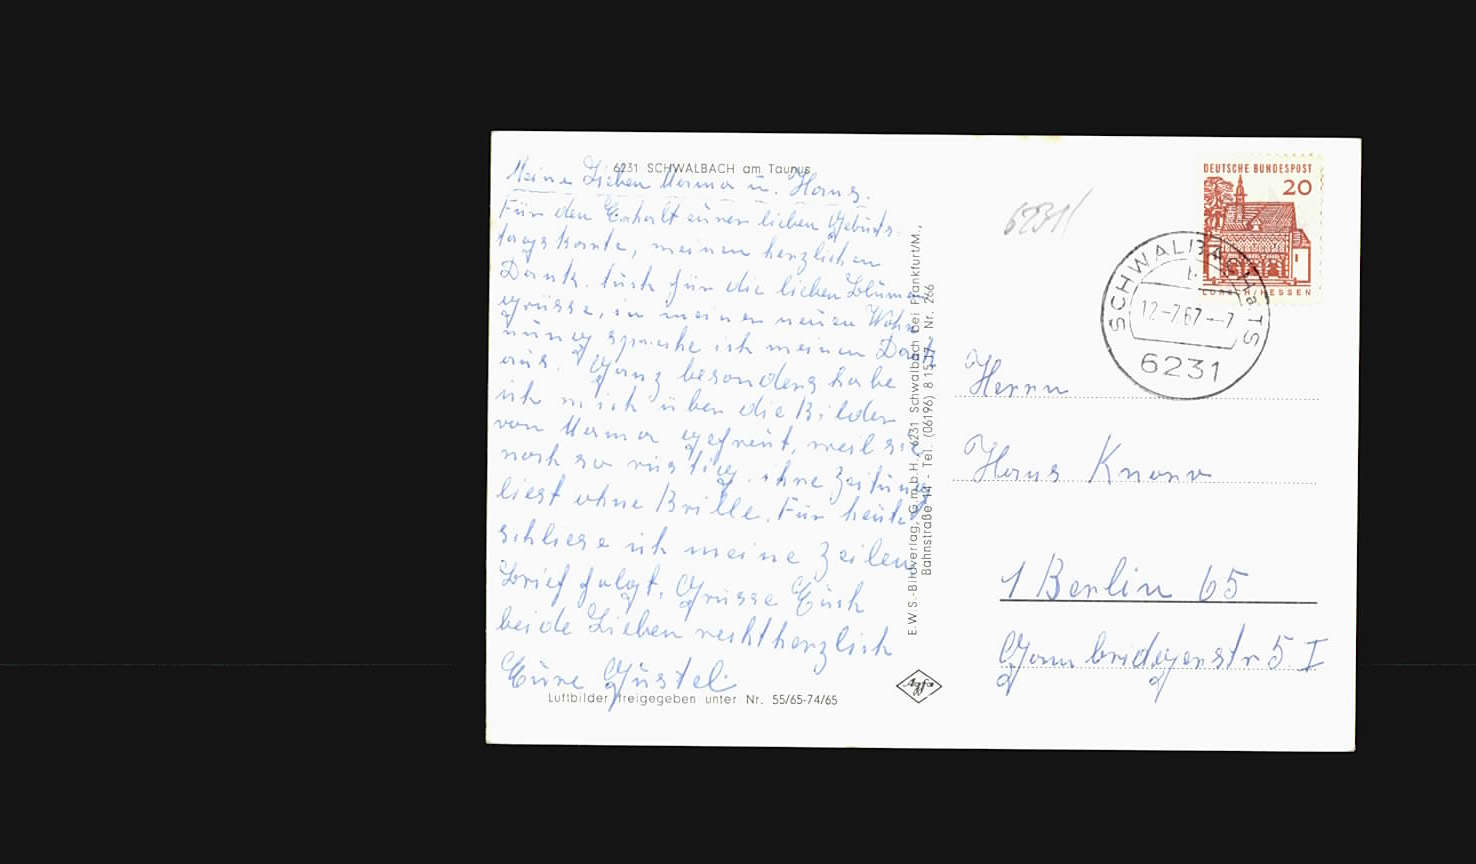 6231 SCHWALBACH am Taunus
Meine Lieben Mama u. Hans.
Für den Erhalt eurer lieben Geburts-
tagskarte, meinen herzlichen
Dank. Auch für die lieben Blumen
grüsse, in meiner neuen Woh
nung spreche ich meinen Dank
aus. Ganz besonders habe
ich mich über die Bilder
von Mama gefreut, weil sie
noch so rüstig ihre Zeitung
liest ohne Brille. Für heute
schliese ich meine Zeilen
Brief folgt. Grüsse Euch
beide Lieben rechtherzlich
Eure Gustel
Luftbilder freigegeben unter Nr. 55/65-74/65
E.W.S.-Bildverlag, G.m.b.H., 6231 Schwalbach bei Frankfurt/M.,
Bahnstraße 14 - Tel. (06196) 8 15 17 - Nr. 266
Agfa
6231
DEUTSCHE BUNDESPOST
20
LORSCH/HESSEN
SCHWALBACH a TS
12-7.67--7
6231
Herrn
Hans Knorr
1 Berlin 65
Gambridgerstr 5 I